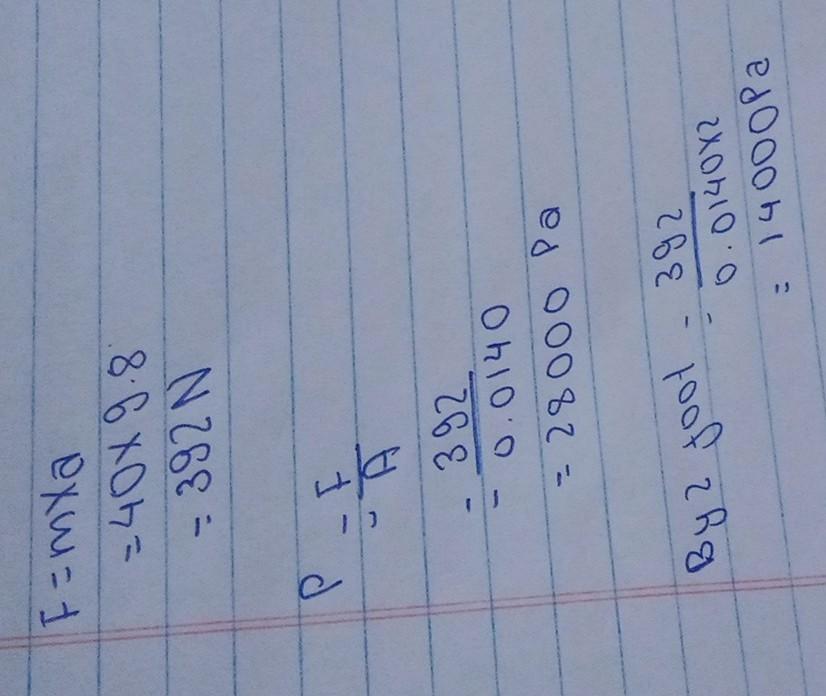 F = mxa
= 40 x 9.8
= 392 N
P = F/A
= 392/0.0140
= 28000 Pa
By 2 foot = 392/0.0140x2
= 14000Pa